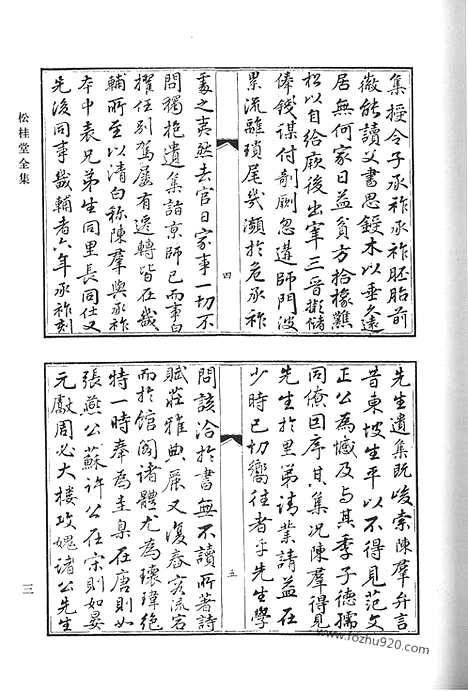 松桂堂全集
集授令子承祚承祚胚胎前
徽能讀父書思鋟木以垂久遠
居無何家日益貧方拾橡雜
松以自給厥後出宰三晉擬儲
俸錢謀付剞劂忽遘師門波
累流離瑣尾幾瀕於危承祚
四
去官日家事一切不
問獨抱遺集詣京師已而事白
擢任別駕屢有遷轉皆在畿
輔所至以清白稱陳羣與承祚
本中表兄弟生同里長同仕又
先後同事畿輔者六年承祚刻
先生遺集既竣索陳羣弁言
昔東坡生平以不得見范文
正公為憾及與其季子德孺
同僚因序其集況陳羣得見
先生於里第請業請益在
少時已切嚮往者乎先生學
五
問該洽於書無不讀所著詩
賦莊雅典麗又復春容流宕
而於館閣諸體尤為瓌瑋絕
特一時奉為圭臬在唐則如
張燕公蘇許公在宋則如晏
元獻周必大樓攻媿諸公先生
三
www.fozhu920.com